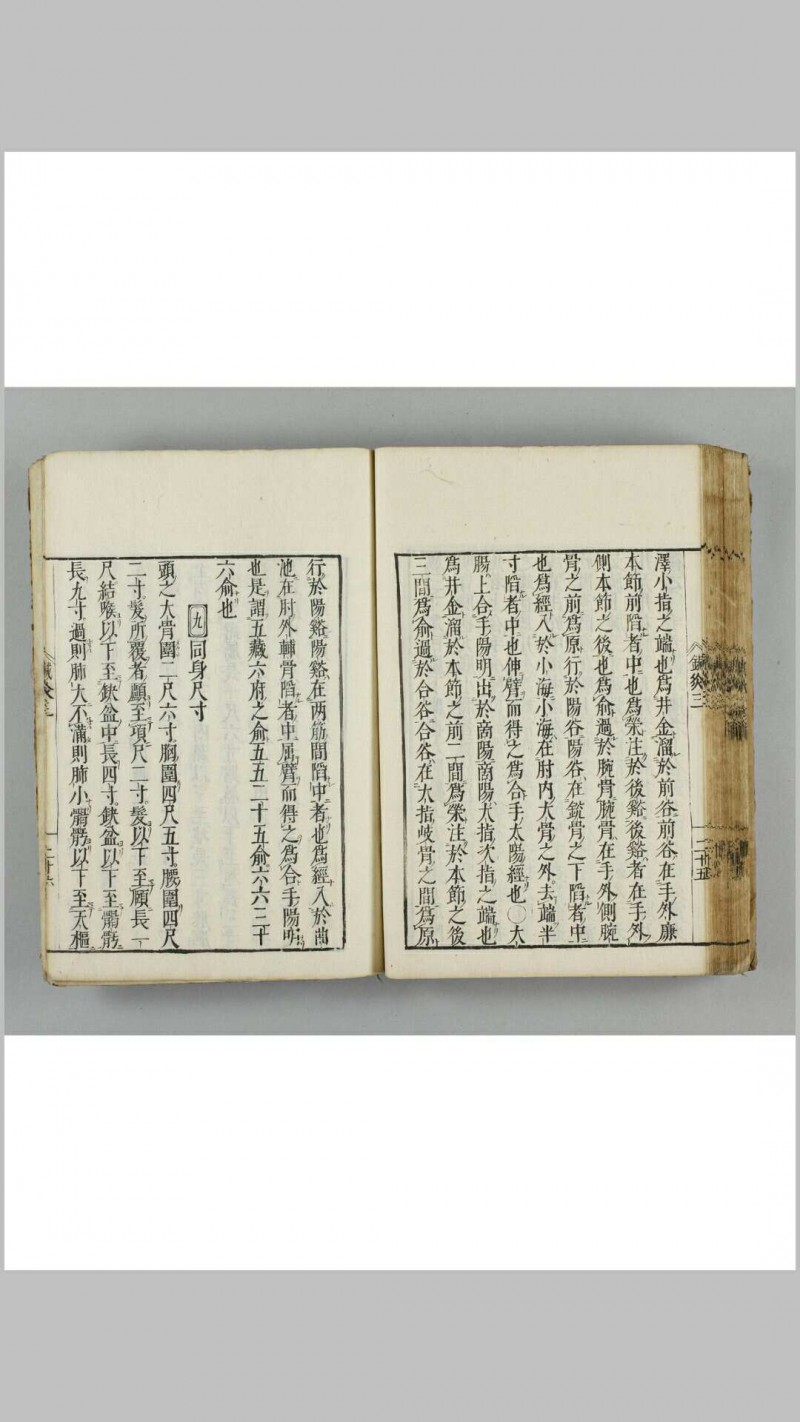 澤小指之端也爲井金溜於前谷前谷在手外廉
本節前陷者中也爲滎注於後谿後谿者在手外
側本節之後也爲俞過於腕骨腕骨在手外側腕
骨之前爲原行於陽谷陽谷在銳骨之下陷者中
也爲經入於小海小海在肘内大骨之外去端半
寸陷者中也伸臂而得之爲合手太陽經也○大
腸上合手陽明出於商陽商陽大指次指之端也
爲井金溜於本節之前二間爲滎注於本節之後
三間爲俞過於合谷合谷在大指岐骨之間爲原
鍼灸三
二十五
行於陽谿陽谿在两筋間陷中者也爲經入於曲
池在肘外輔骨陷者中屈臂而得之爲合手陽明
也是謂五藏六府之俞五五二十五俞六六三十
六俞也
九 同身尺寸
頭之大骨圍二尺六寸胸圍四尺五寸腰圍四尺
二寸髮所覆者顱至項尺二寸髮以下至頤長一
尺結喉以下至缺盆中長四寸缺盆以下至𩩲骬
長九寸過則肺大不滿則肺小𩩲骬以下至天樞